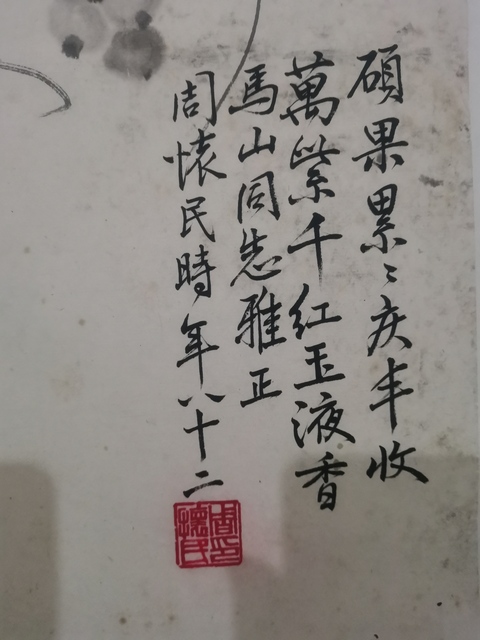 碩果累〻庆丰收
萬紫千红玉液香
馬山同志雅正
周懐民時年八十二
周懷民印